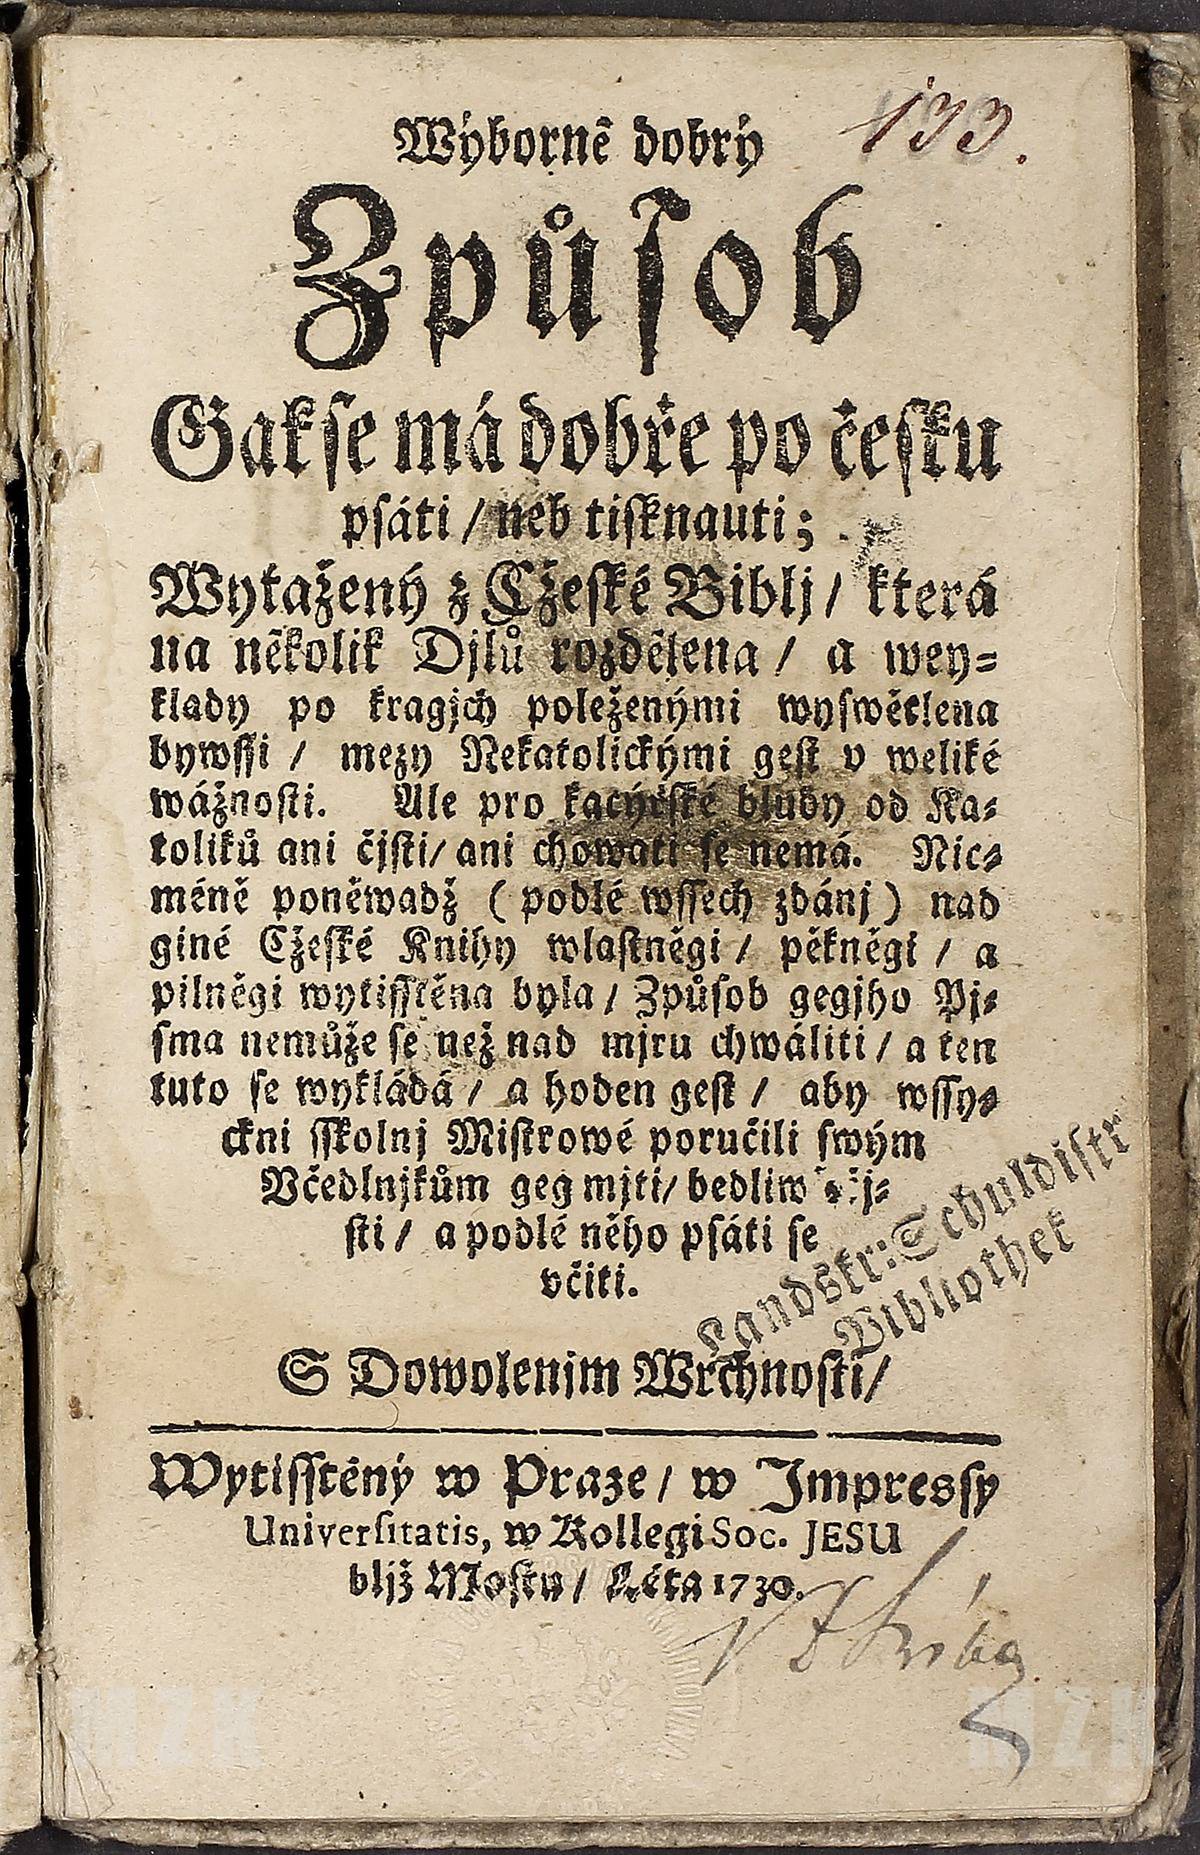 133.
Wýborně dobrý
Způſob
Gak ſe má dobře po česku
psáti / neb tiſknauti;
Wytažený z Cžeſké Biblj / která
na několik Djlů rozdělena / a wey=
klady po kragjch položenými wyswětlena
bywſſi / mezy Nekatolickými geſt v weliké
wážnoſti. Ale pro kacýřſké bludy od Ka=
toliků ani čjſti / ani chowati ſe nemá. Nic=
méně poněwadž ( podlé wſſech zdánj ) nad
giné Cžeſké Knihy wlaſtněgi / pěkněgi / a
pilněgi wytiſſtěna byla / Způſob gegjho Pj=
ſma nemůže ſe než nad mjru chwáliti / a ten
tuto ſe wykládá / a hoden geſt / aby wſſy=
ckni ſſkolnj Miſtrowé poručili ſwým
Včedlnjkům geg mjti / bedliwě čj=
ſti / a podlé něho pſáti ſe
včiti.
Landskr: Schuldistr
Bibliothek
S Dowolenjm Wrchnoſti /
Wytiſſtěný w Praze / w Impreſſy
Univerſitatis, w Kollegi Soc. JESU
bljž Moſtu / Léta 1730.
MZK
MZK